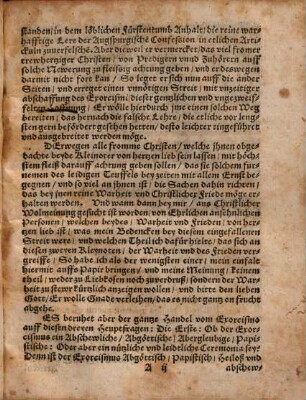 standen / in dem löblichen Fürstentumb Anhalt / die reine war-
hafftige Lere der Augspurgische Confession in etlichen Arti-
kuln zuuerfelschē. Aber dieweil er vermercket / das viel fromer
ertwehrziger Christen / von Predigern vnnd Zuhörern auff
solche Newerung zu fleissig achtung geben / vnd er deswegen
darmit nicht fort kan / So leget er sich nun auff die ander
Seiten / vnd erreget einen vnnötigen Streit / mit vnzeitiger
abschaffung des Exorcismi / dieser gemeinlichen vnd vngezweif-
 / Er wölle hierdurch jme einen Weg
bereiten / das hernach die falsche Lehre / die er etliche vor lang-
sten gern befördert gesehen hetten / desto leichter eingeführet
vnd ausgebreitet werden möge.
DErwegen alle fromme Christen / welche jhnen obge-
dachte beyde Kleinoter von hertzen lieb sein lassen / mit höch-
stem fleiß darauff achtung geben sollen / das sie solchem furne-
men des leidigen Teuffels bey zeiten mit allem Ernst be-
gegnen / vnd so viel an jhnen ist / die Sachen dahin richten /
das bey jnen reine Warheit vnd Christlicher Friede möge er-
halten werden. Vnd wann dann bey mir / aus Christlicher
Wolmeinung gesucht ist worden / von Ehrlichen ansehnlichen
Personen / welchen beydes / Warheit vnd Frieden / von her-
tzen lieb ist / was mein Bedencken bey diesem eingefallenen
Streit were / vnd welchen Theil ich dafür hielte / das sich an
diesen zweyen Kleynoten / der Warheit vnd des Frieden ver-
greiffe / So habe ich als der wenigsten einer / mein einfal-
hiermit auffs Papir bringen / vnd meine Meinung / keinem
theil / weder zu Liebkosen noch zuuordruß / sondern der War-
heit zu stewr kürtzlich anzeigen wollen / vnd bitte den lieben
Gott / Er wolle Gnade verleihen / das es nicht gantz on frucht
abgehe.
ES beruhet aber der gantze Handel vom Exorcismo
auff diesen dreyen Heuptfragen: Die Erste: Ob der Exor-
cismus ein Abschewliche / Abgöttische / Abergleubige / Papi-
stische: Oder aber ein nützliche vnd leidliche Ceremonia sey?
Denn ist der Exorcismus Abgöttisch / Papistisch / Heiloß vnd
A ij abschew-